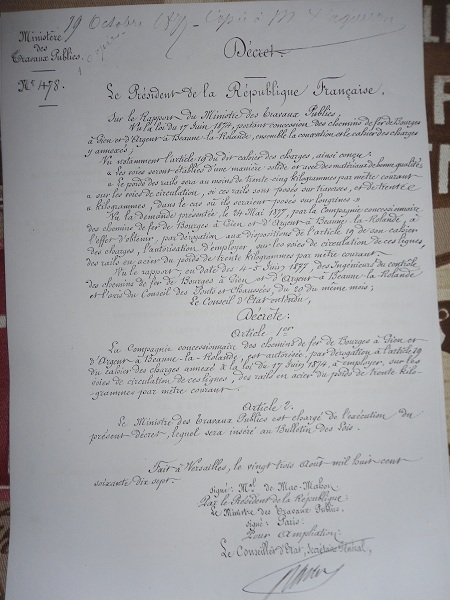 19 Octobre 1877 Copie à M.
Ministère
des
Travaux Publics
Décret
Nº 478.
Le Président de la République Française,
Sur le Rapport du Ministre des Travaux Publics;
Vu la loi du 17 Juin 1874, portant concession des chemins de fer de Bourges
à Gien et d'Argent à Beaune-la-Rolande, ensemble la convention et le cahier des charges
y annexés;
Vu notamment l'article 19 du dit cahier des charges, ainsi conçu:
« les voies seront établies d'une manière solide et avec des matériaux de bonne qualité
« le poids des rails sera au moins de trente cinq kilogrammes par mètre courant
« sur les voies de circulation, si ces rails sont posés sur traverses, et de trente
« kilogrammes, dans le cas où ils seraient posés sur longrines »
Vu la demande présentée, le 24 Mai 1877, par la Compagnie concessionnaire
des chemins de fer de Bourges à Gien et d'Argent à Beaune-la-Rolande, à
l'effet d'obtenir, par dérogation aux dispositions de l'article 19 de son cahier
des charges, l'autorisation d'employer, sur les voies de circulation de ces lignes,
des rails en acier du poids de trente kilogrammes par mètre courant.
Vu le rapport, en date des 4-5 Juin 1877, des Ingénieurs du contrôle
des chemins de fer de Bourges à Gien et d'Argent à Beaune-la-Rolande
et l'avis du Conseil des Ponts et Chaussées, du 20 du même mois;
Le Conseil d'Etat entendu,
Décrète:
Article 1er
La Compagnie concessionnaire des chemins de fer de Bourges à Gien et
d'Argent à Beaune-la-Rolande, est autorisée, par dérogation à l'article 19
du cahier des charges annexé à la loi du 17 Juin 1874, à employer, sur les
voies de circulation de ces lignes, des rails en acier du poids de trente kilo-
grammes par mètre courant.
Article 2.
Le Ministre des Travaux Publics est chargé de l'exécution du
présent décret, lequel sera inséré au Bulletin des Lois.
Fait à Versailles, le vingt trois Août mil huit cent
soixante dix sept.
signé: Mal de Mac-Mahon
Par le Président de la République:
Le Ministre des Travaux Publics.
signé: Paris.
Pour Ampliation:
Le Conseiller d'Etat, Secrétaire Général,